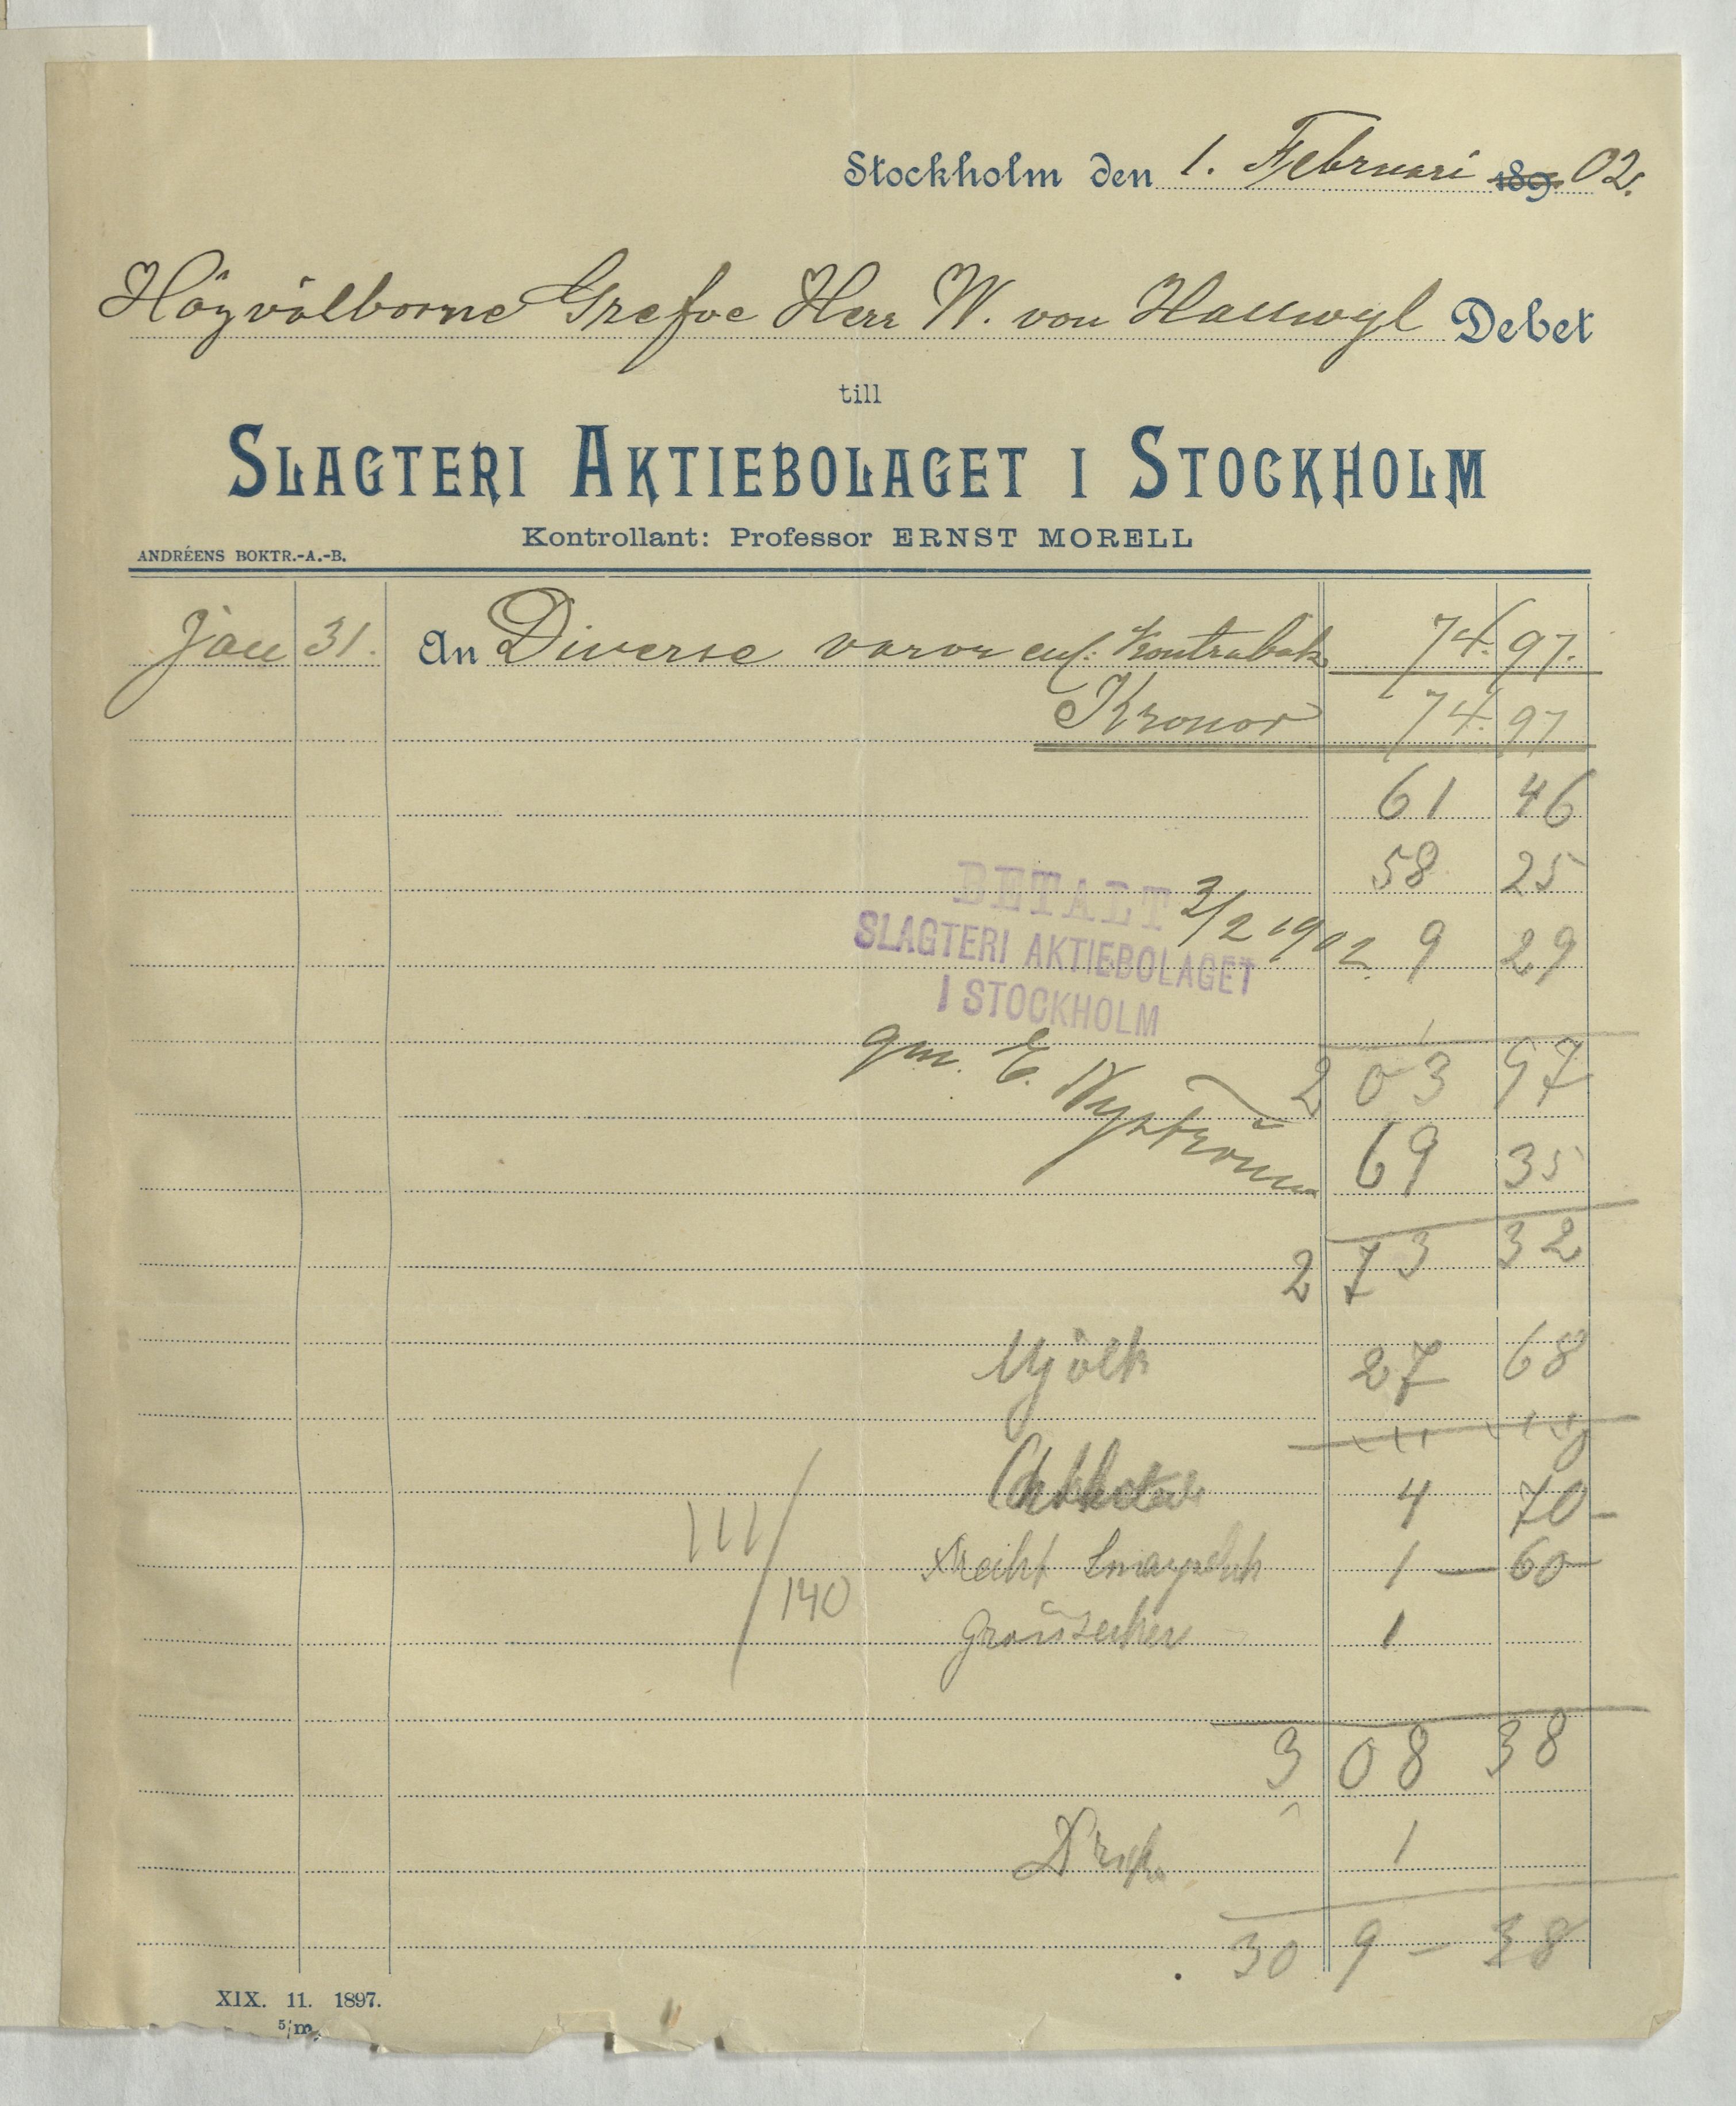 Stockholm den 1. Februari 189 02.
Högvälborne Grefve Herr W. von Hallwyl Debet
till
SLAGTERI AKTIEBOLAGET I STOCKHOLM
Kontrollant: Professor ERNST MORELL
ANDRÉENS BOKTR.-A.-B.
Jan 31. An Diverse varor enl. Kontrabok 74. 97.
Kronor 74. 97
61 46
58 25
BETALT 3/2 1902. 9 29
SLAGTERI AKTIEBOLAGET
I STOCKHOLM
gm. E. Nyström
203 97
69 35
273 32
Mjölk 27 68
4 70
1 — 60
140
Grönsaker 1
308 38
1
309 — 38
XIX. 11. 1897.
5/m.